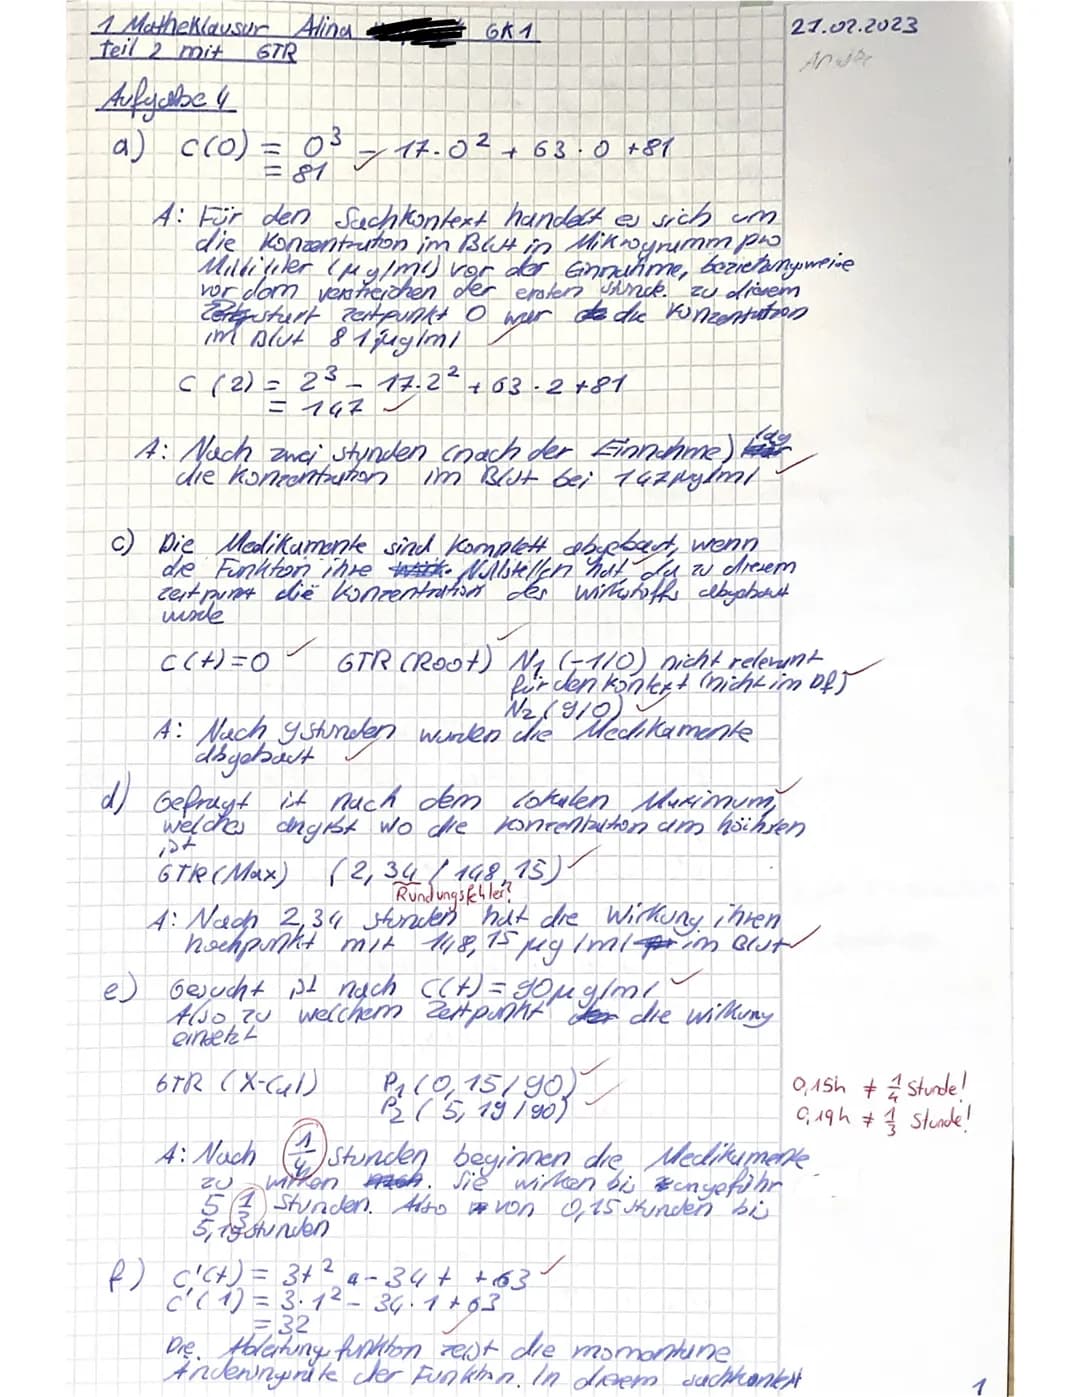 1 Matheklausur Alina GK1
27.02.2023
Teil 2 mit GTR
Aufgabe 4
a) c(0) = 0³ - 17·0² + 63·0 +81
= 81
A: Für den Sachkontext handelt es sich um
die Konzentraton im Blut in Mikrogramm pro
Milliliter (µg/ml) vor der Einnahme, beziehungsweise
vor dem verstreichen der ersten Stunde. zu diesem
zeitpunkt 0 war die Konzentration
im Blut 81µg/ml
c (2) = 2³ - 17·2² + 63·2 +81
= 147
A: Nach zwei stunden (nach der Einnahme) lag
die Konzentration im Blut bei 147µg/ml
c) Die Medikamente sind komplett abgebaut, wenn
die Funkton ihre Nullstellen hat da zu diesem
zeitpunkt die Konzentration des Wirkstoffs abgebaut
wurde
c(t)=0 GTR (Root) N₁ (-1/0) nicht relevant
für den Kontext (nicht im Df)
N₂(9/0)
A: Nach 9 stunden wurden die Medikamente
abgebaut
d) Gefragt ist nach dem lokalen Maximum,
welches angibt wo die Konzentration am höhsten
ist
GTR (Max) (2,34 / 148,15)
Rundungsfehler?
A: Nach 2,34 stunden hat die Wirkung ihren
hochpunkt mit 148,15 µg/ml im Blut
e) Gesucht ist nach c(t) = 90µg/ml
Also zu welchem Zeitpunkt die wirkung
einsetzt
GTR (X-Cal) P₁(0,15/90)
0,15h ≠ 1/4 Stunde!
P₂(5,19/90)
0,19h ≠ 1/3 Stunde!
A: Nach 1/4 Stunden beginnen die Medikamente
zu wirken. Sie wirken bis ungefähr
5 1/3 Stunden. Also von 0,15 stunden bis
5,19 stunden
f) c'(t) = 3t² - 34t + 63
c'(1) = 3·1² - 34·1 + 63
= 32
Die Ableitungsfunkton zeigt die momentane
Änderungsrate der Funktion. In diesem sachkontext
1